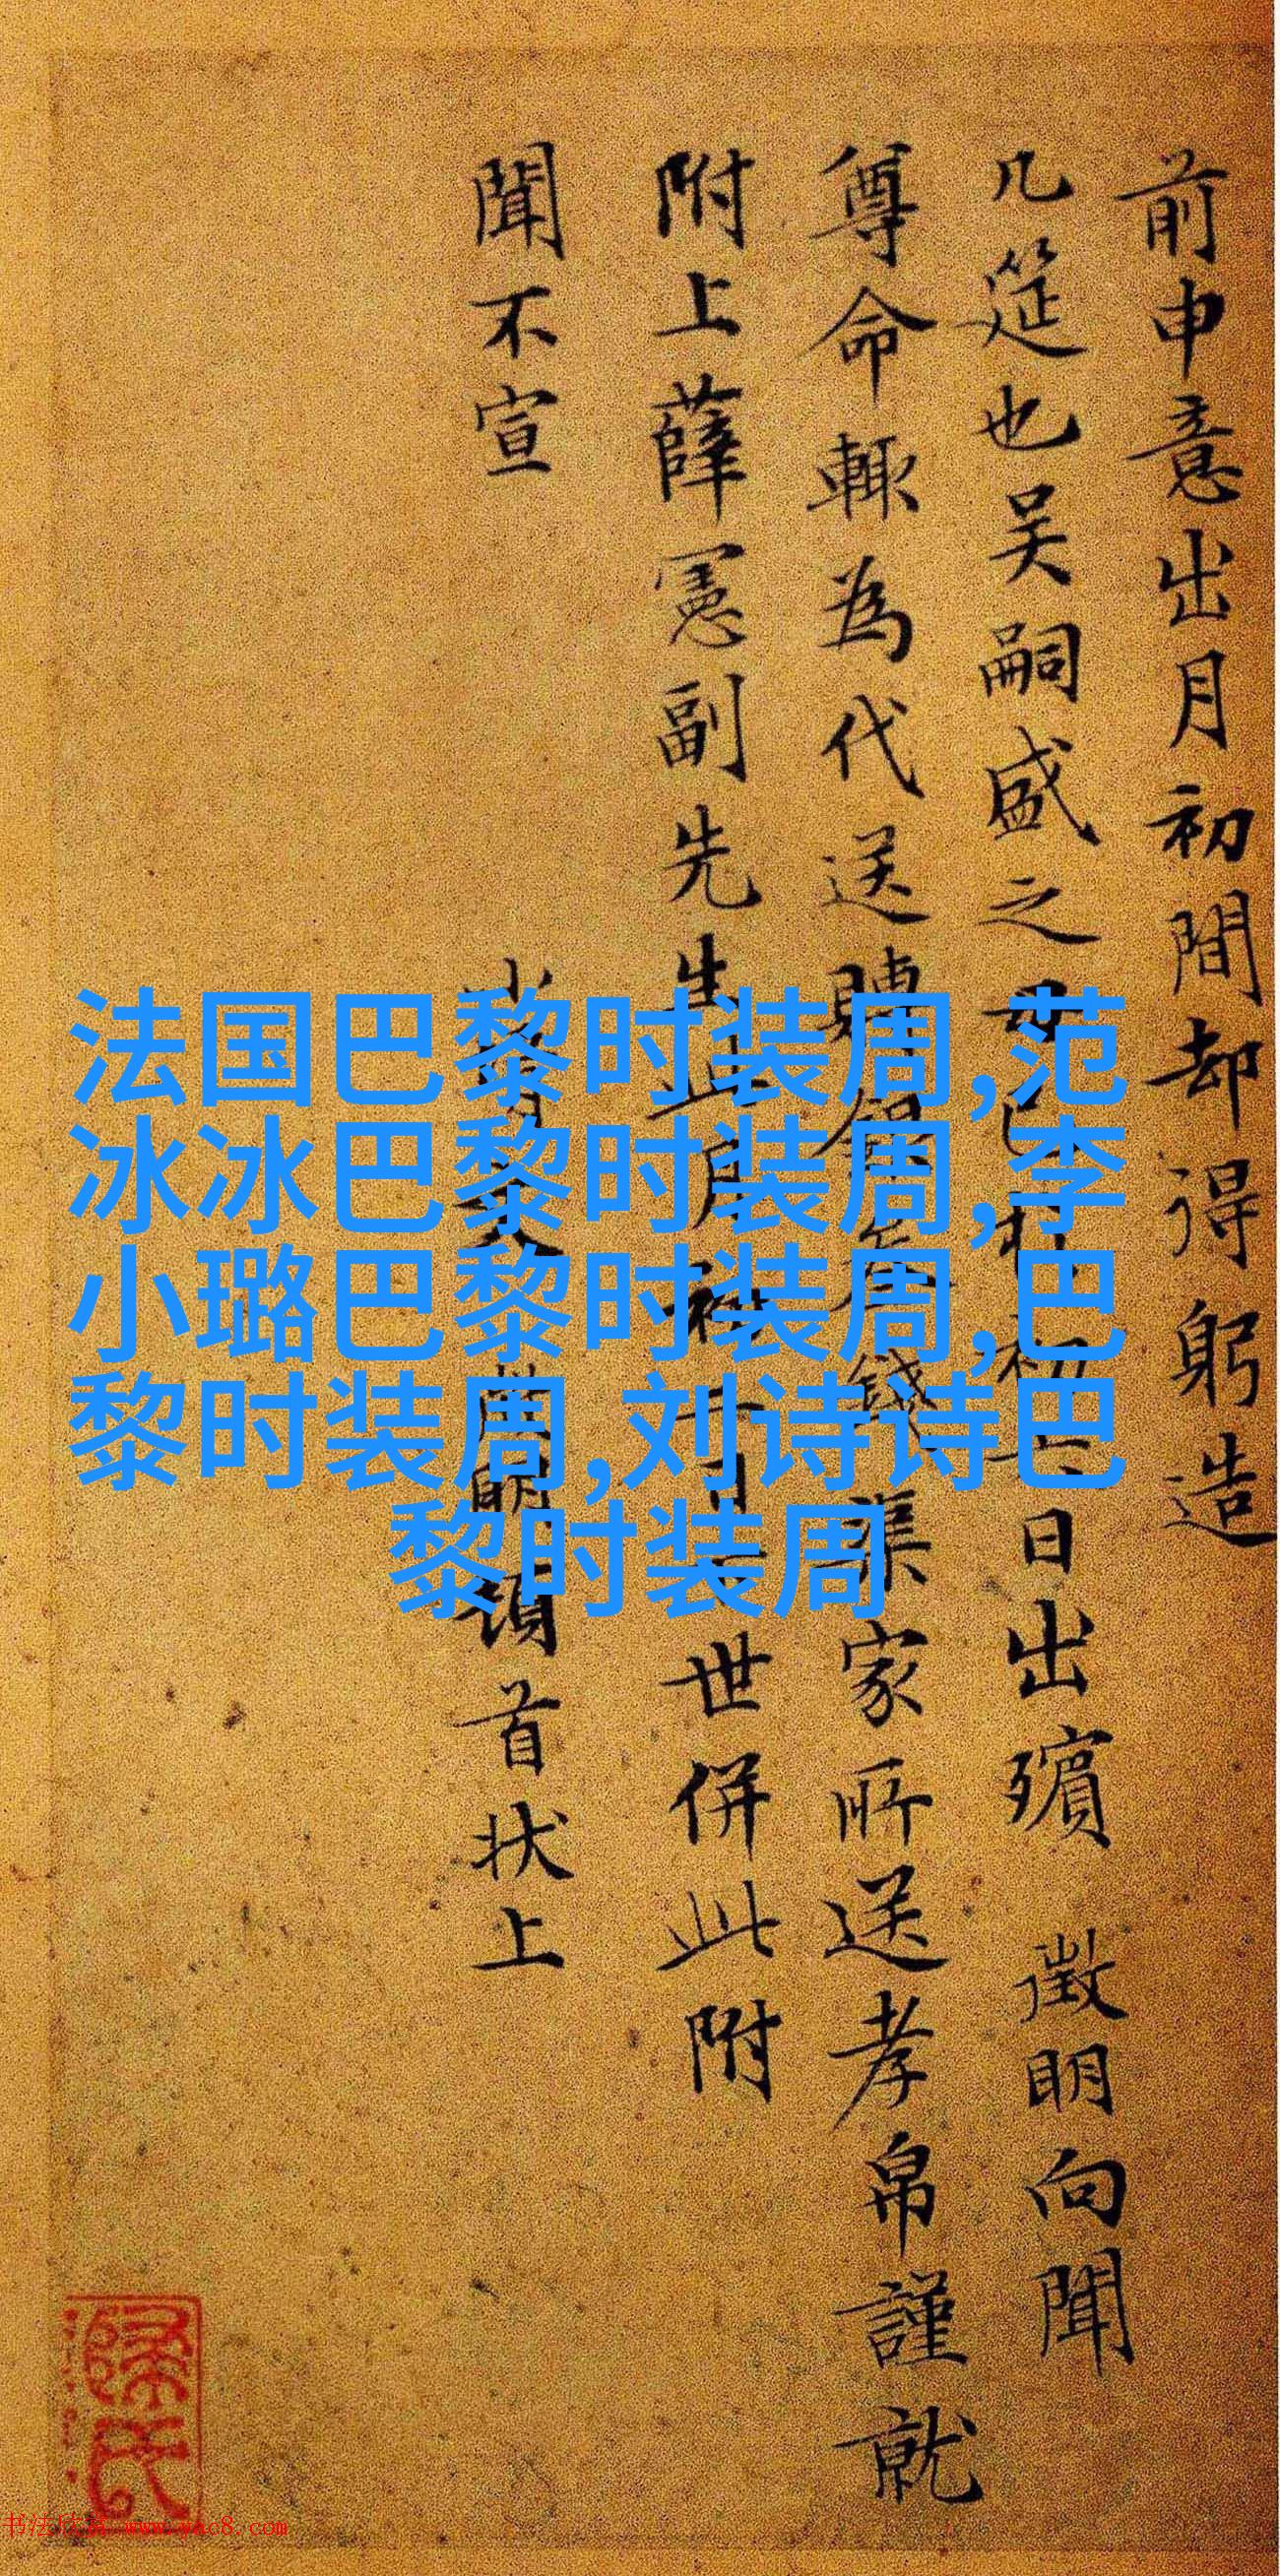 前申意出月初間却得躬造
几筵也吴嗣盛之母已初日出殯 徵明向聞
尊命輒為代送賻錢準家所送孝帛謹就
附上薛憲副先生世併此附
聞不宣
明頓首狀上
法国巴黎时装周,范
冰冰巴黎时装周,李
小璐巴黎时装周,巴
黎时装周,刘诗诗巴
黎时装周
书法欣赏 www.yac8.com